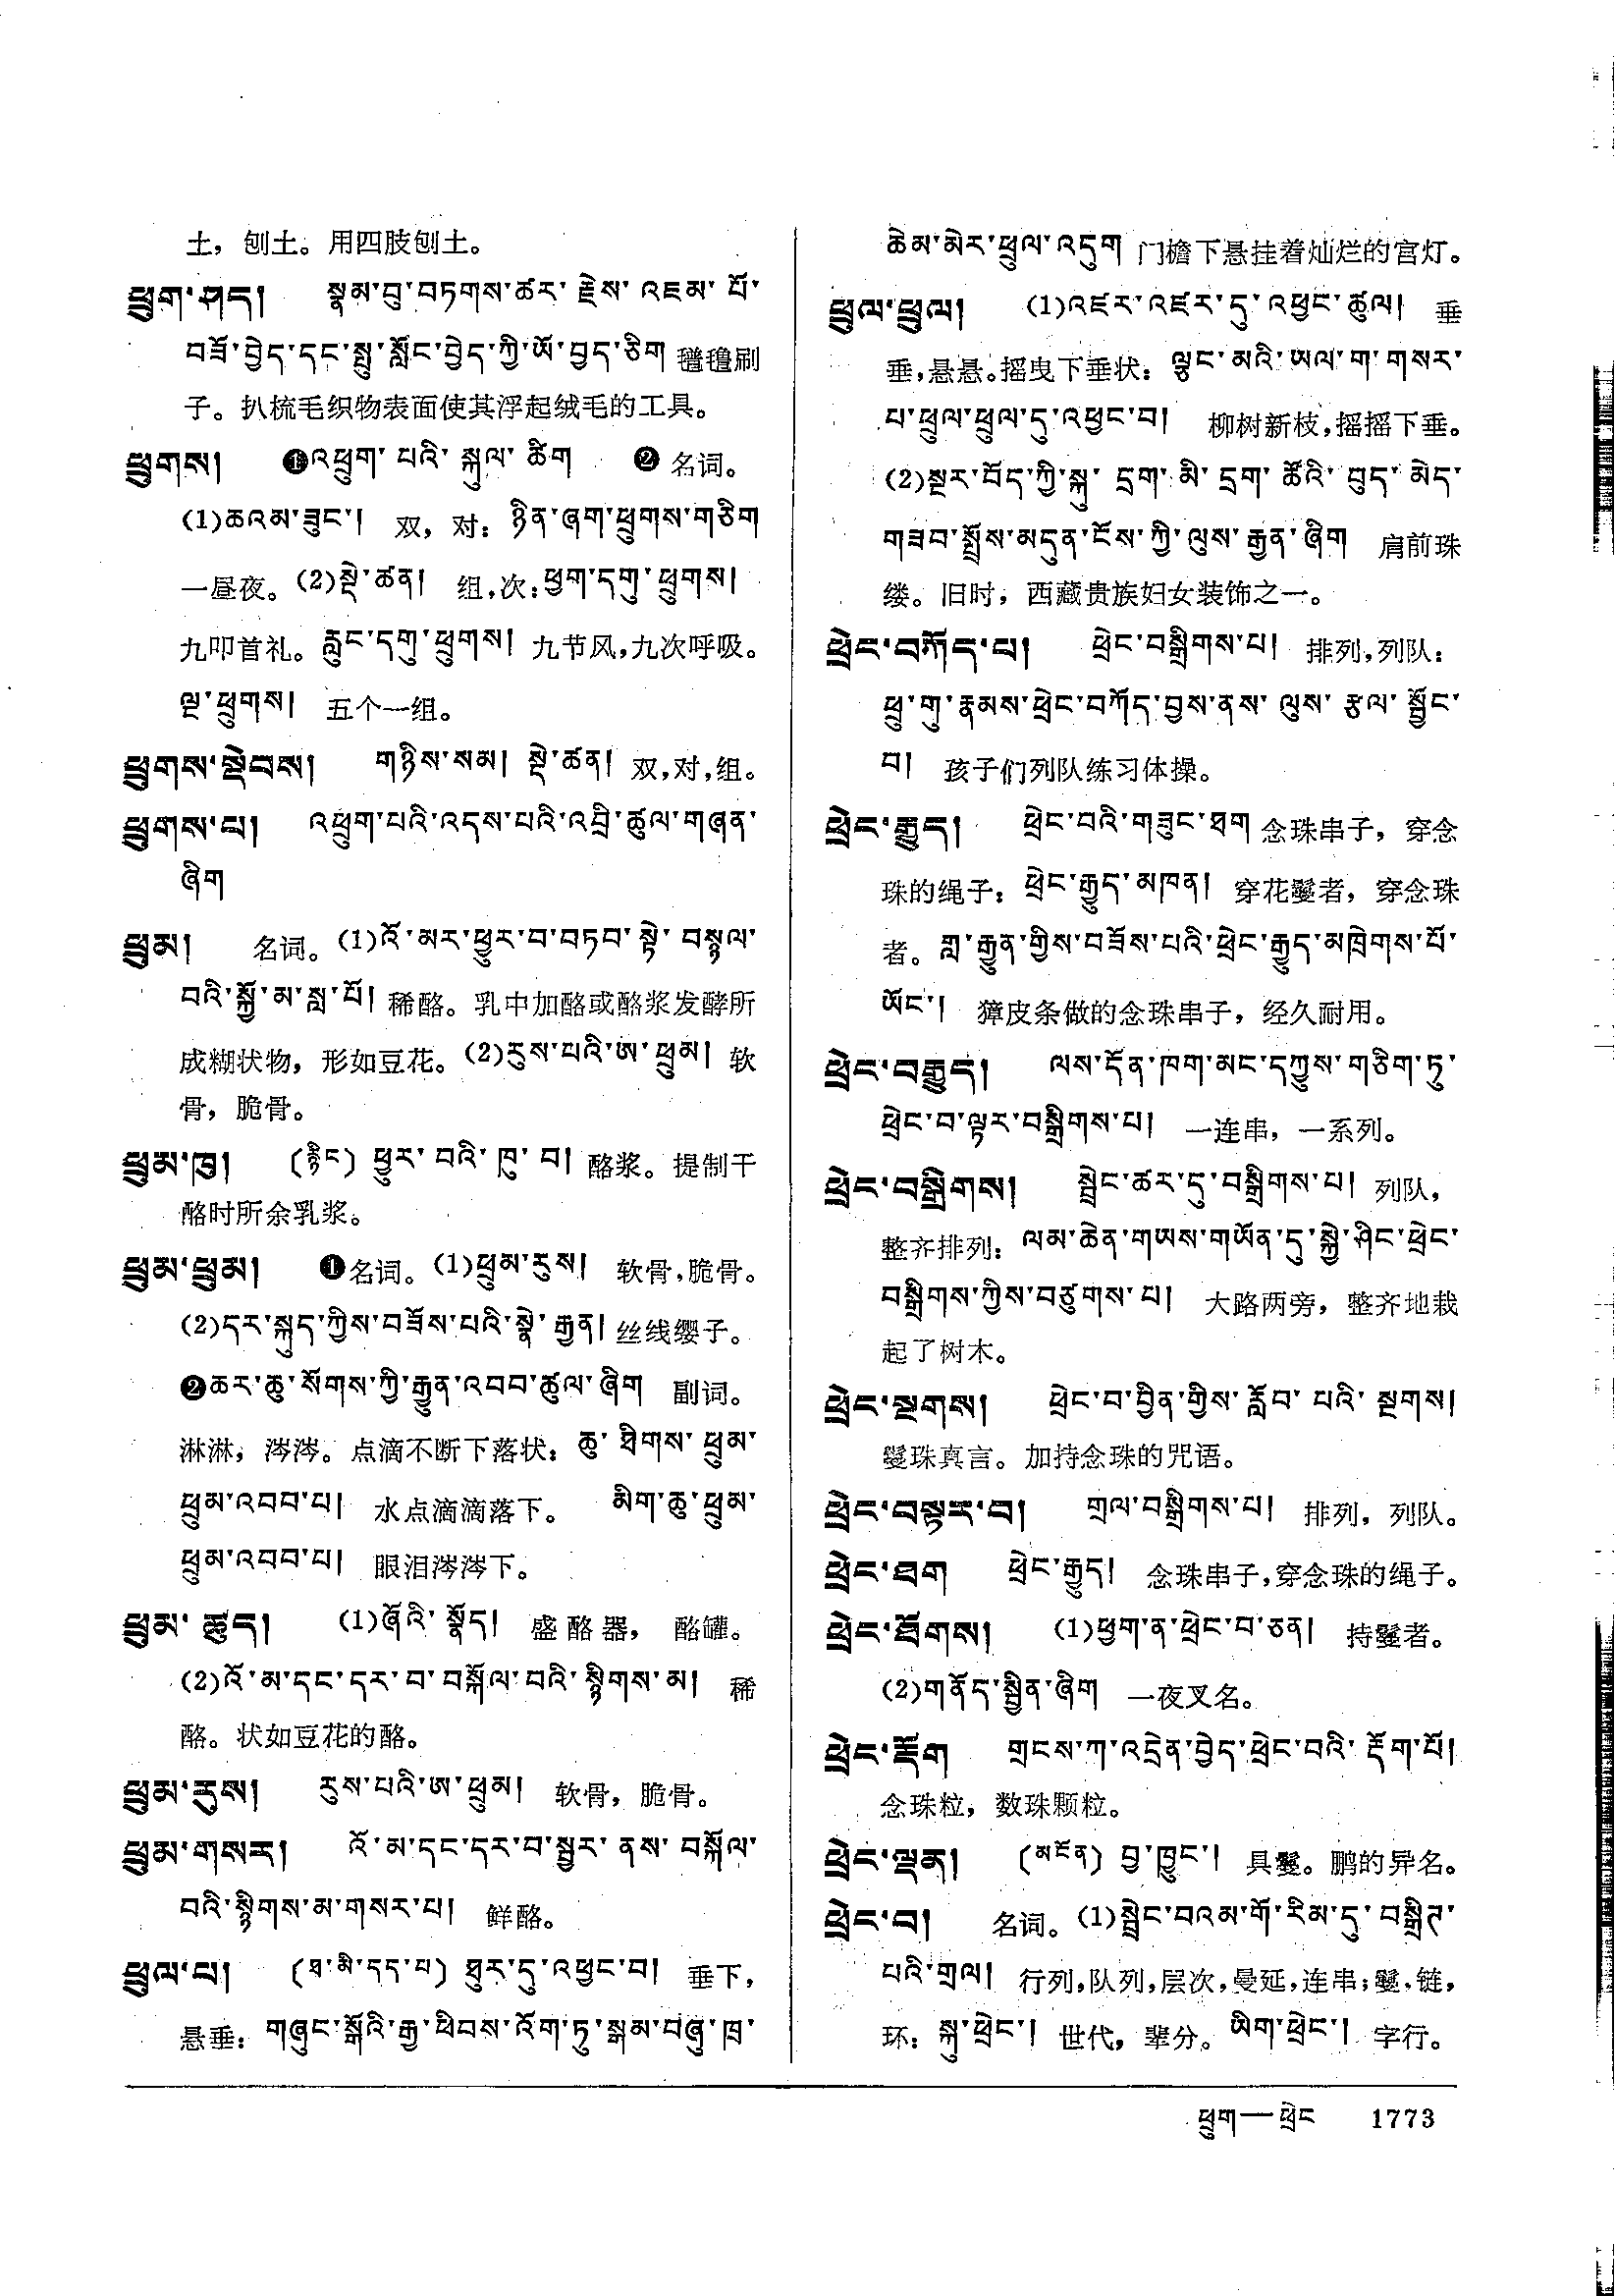 土，刨土。用四肢刨土。
ཕྲུག་ཤད། སྣམ་བུ་བཏགས་ཚར་རྗེས་འཇམ་པོ་
བཟོ་བྱེད་དང་སྤུ་སློང་བྱེད་ཀྱི་ཡོ་བྱད་ཅིག 氆氇刷
子。扒梳毛织物表面使其浮起绒毛的工具。
ཕྲུགས། ❶འཕྲུག་པའི་སྐུལ་ཚིག ❷ 名词。
(1)ཆའམ་ཟུང་། 双，对：ཉིན་ཞག་ཕྲུགས་གཅིག
一昼夜。(2)སྡེ་ཚན། 组,次：ཕྱག་དགུ་ཕྲུགས།
九叩首礼。རླུང་དགུ་ཕྲུགས། 九节风,九次呼吸。
ལྔ་ཕྲུགས། 五个一组。
ཕྲུགས་སྡེབས། གཉིས་སམ། སྡེ་ཚན། 双,对,组。
ཕྲུགས་པ། འཕྲུག་པའི་འདས་པའི་འབྲི་ཚུལ་གཞན་
ཞིག
ཕྲུམ། 名词。(1)འོ་མར་ཕྱུར་བ་བཏབ་སྟེ་བསྙལ་
བའི་སྐྱོ་མ་སླ་པོ། 稀酪。乳中加酪或酪浆发酵所
成糊状物，形如豆花。(2)རུས་པའི་ཨ་ཕྲུམ། 软
骨，脆骨。
ཕྲུམ་ཁུ། (རྙིང) ཕྱུར་བའི་ཁུ་བ། 酪浆。提制干
酪时所余乳浆。
ཕྲུམ་ཕྲུམ། ❶名词。(1)ཕྲུམ་རུས། 软骨,脆骨。
(2)དར་སྐུད་ཀྱིས་བཟོས་པའི་སྣེ་རྒྱན། 丝线缨子。
❷ཆར་ཆུ་སོགས་ཀྱི་རྒྱུན་འབབ་ཚུལ་ཞིག 副词。
淋淋，涔涔。点滴不断下落状：ཆུ་ཐིགས་ཕྲུམ་
ཕྲུམ་འབབ་པ། 水点滴滴落下。 མིག་ཆུ་ཕྲུམ་
ཕྲུམ་འབབ་པ། 眼泪涔涔下。
ཕྲུམ་ཚུད། (1)ཞོའི་སྣོད། 盛酪器，酪罐。
(2)འོ་མ་དང་དར་བ་བསྐོལ་བའི་སྙིགས་མ། 稀
酪。状如豆花的酪。
ཕྲུམ་རུས། རུས་པའི་ཨ་ཕྲུམ། 软骨，脆骨。
ཕྲུམ་གསར། འོ་མ་དང་དར་བ་སྦྱར་ནས་བསྐོལ་
བའི་སྙིགས་མ་གསར་པ། 鲜酪。
ཕྲུལ་པ། (ཐ་མི་དད་པ) ཐུར་དུ་འཕྱང་བ། 垂下，
悬垂：གཞུང་སྒོའི་རྒྱ་ཕིབས་འོག་ཏུ་སྒམ་བཞུ་ཁྲ་
ཆེམ་མེར་ཕྲུལ་འདུག 门檐下悬挂着灿烂的宫灯。
ཕྲུལ་ཕྲུལ། (1)འཛར་འཛར་དུ་འཕྱང་ཚུལ། 垂
垂,悬悬。摇曳下垂状：ལྕང་མའི་ཡལ་ག་གསར་
པ་ཕྲུལ་ཕྲུལ་དུ་འཕྱང་བ། 柳树新枝,摇摇下垂。
(2)སྔར་བོད་ཀྱི་སྐུ་དྲག་མི་དྲག་ཚོའི་བུད་མེད་
གཟབ་སྤྲོས་མདུན་ངོས་ཀྱི་ལུས་རྒྱན་ཞིག 肩前珠
缕。旧时，西藏贵族妇女装饰之一。
ཕྲེང་བཀོད་པ། ཕྲེང་བསྒྲིགས་པ། 排列,列队：
ཕྲུ་གུ་རྣམས་ཕྲེང་བཀོད་བྱས་ནས་ལུས་རྩལ་སྦྱོང་
བ། 孩子们列队练习体操。
ཕྲེང་རྒྱུད། ཕྲེང་བའི་གཟུང་ཐག 念珠串子，穿念
珠的绳子；ཕྲེང་རྒྱུད་མཁན། 穿花鬘者，穿念珠
者。གླ་རྒྱུན་གྱིས་བཟོས་པའི་ཕྲེང་རྒྱུད་མཁྲེགས་པོ་
ཡོང་། 獐皮条做的念珠串子，经久耐用。
ཕྲེང་བརྒྱུད། ལས་དོན་ཁག་མང་དཀྱུས་གཅིག་ཏུ་
ཕྲེང་བ་ལྟར་བསྒྲིགས་པ། 一连串，一系列。
ཕྲེང་བསྒྲིགས། སྤྲེང་ཚར་དུ་བསྒྲིགས་པ། 列队，
整齐排列：ལམ་ཆེན་གཡས་གཡོན་དུ་སྐྱེ་ཤིང་ཕྲེང་
བསྒྲིགས་ཀྱིས་བཙུགས་པ། 大路两旁，整齐地栽
起了树木。
ཕྲེང་སྔགས། ཕྲེང་བ་བྱིན་གྱིས་རློབ་པའི་སྔགས།
鬘珠真言。加持念珠的咒语。
ཕྲེང་བསྟར་བ། གྲལ་བསྒྲིགས་པ། 排列，列队。
ཕྲེང་ཐག ཕྲེང་རྒྱུད། 念珠串子,穿念珠的绳子。
ཕྲེང་ཐོགས། (1)ཕྱག་ན་ཕྲེང་བ་ཅན། 持鬘者。
(2)གནོད་སྦྱིན་ཞིག 一夜叉名。
ཕྲེང་རྡོག གྲངས་ཀ་འདྲེན་བྱེད་ཕྲེང་བའི་རྡོག་པོ།
念珠粒，数珠颗粒。
ཕྲེང་ལྡན། (མངོན) བྱ་ཁྱུང་། 具鬘。鹏的异名。
ཕྲེང་བ། 名词。(1)སྤྲེང་བའམ་གོ་རིམ་དུ་བསྒྲིར་
པའི་གྲལ། 行列,队列,层次,曼延,连串；鬘,链，
环：སྐུ་ཕྲེང་། 世代，辈分。ཡིག་ཕྲེང་། 字行。
ཕྲུག — ཕྲེང 1773